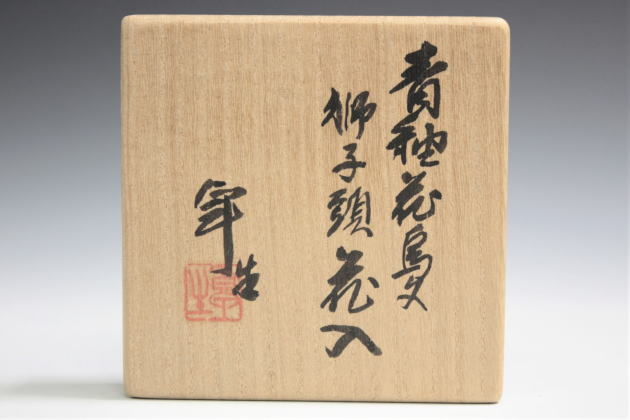 青釉花鳥文
獅子頭花入
年造